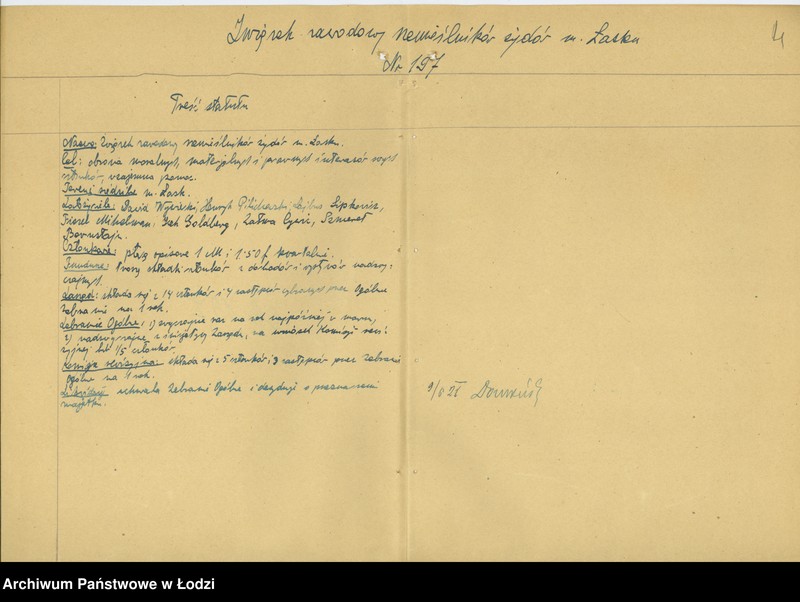 Związek zawodowy rzemieślników żydów m. Łasku
4
Nr 197
Treść statutu
Nazwa: Związek zawodowy rzemieślników żydów m. Łasku.
Cel: obrona moralnych, materjalnych i prawnych interesów swych
członków, wzajemna pomoc.
Teren i siedziba m. Łask.
Założyciele: Dawid Henryk Lajbuś Lipkowicz,
Michelman, Icek Goldberg, Załwa Szmerel
Bornsztajn.
Członkowie: płacą wpisowe 1 M i 1.50 f kwartalnie.
Fundusze: tworzą składki członków z dochodów i wpływów nadzwy-
czajnych.
Zarząd: składa się z 14 członków i 4 zastępców wybranych przez Ogólne
Zebranie na 1 rok.
Zebranie Ogólne: 1) zwyczajne raz na rok najpóźniej w marcu,
2) nadzwyczajne z inicjatywy Zarządu, na wniosek Komisji rewi-
zyjnej lub 1/5 członków.
Komisja rewizyjna: składa się z 5 członków i 3 zastępców przez Zebranie
Ogólne na 1 rok.
Likwidację uchwala Zebranie Ogólne i decyduje o przeznaczeniu
majątku.
Archiwum Państwowe w Łodzi